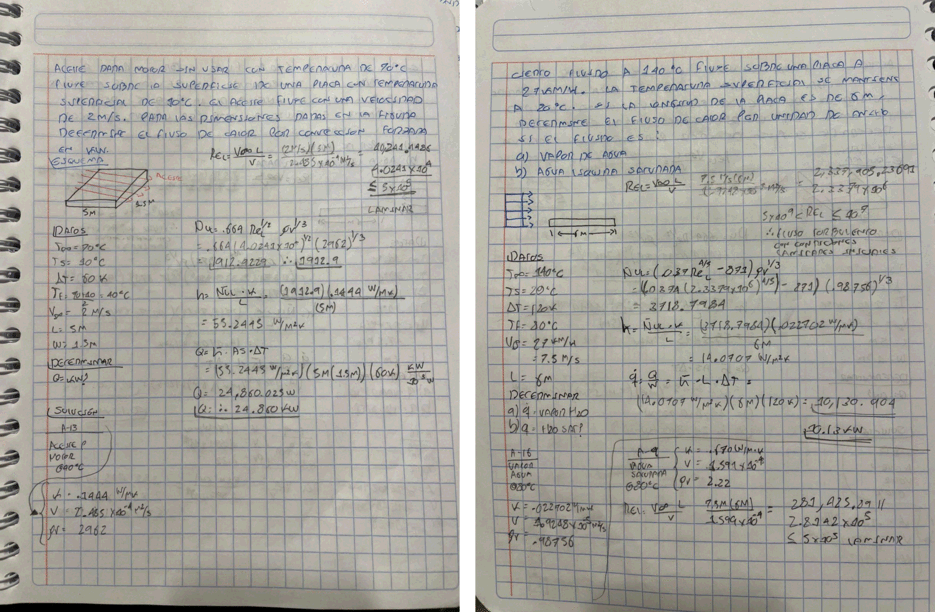 ACEITE PARA MOTOR SIN USAR CON TEMPERATURA DE 70°C
FLUYE SOBRE LA SUPERFICIE DE UNA PLACA CON TEMPERATURA
SUPERFICIAL DE 10°C. EL ACEITE FLUYE CON UNA VELOCIDAD
DE 2M/S. PARA LAS DIMENSIONES DADAS EN LA FIGURA
DETERMINE EL FLUJO DE CALOR POR CONVECCION FORZADA
EN KW.
ESQUEMA
ACEITE
5M
1.5M
ReL = V∞ L / V = (2M/S)(5M) / = 40241.4486
4.0241x10⁴
≤ 5x10⁵
LAMINAR
DATOS
T∞ = 70°C
TS = 10°C
ΔT = 60 K
Tf = 40°C
V∞ = 2 M/S
L = 5M
W = 1.5M
DETERMINAR
Q = KW?
Nu = .664 Re^1/2 Pr^1/3
= .664 (4.0241x10⁴)^1/2 (2962)^1/3
= 1912.9229 ∴ 1912.9
h = NuL · K / L = (1912.9)(.1444 W/MK) / (5M)
= 55.2445 W/M²K
Q = h · AS · ΔT
= (55.2445 W/M²K)(5M(1.5M))(60K) KW / 10³ W
Q = 24,860.025W
Q = ∴ 24.860 KW
SOLUCIÓN
A-13
ACEITE P
MOTOR
@40°C
K = .1444 W/MK
V = 2.485 x10⁻⁴ M²/S
Pr = 2962
CIERTO FLUIDO A 140°C FLUYE SOBRE UNA PLACA A
27KM/H. LA TEMPERATURA SUPERFICIAL SE MANTIENE
A 20°C. SI LA LONGITUD DE LA PLACA ES DE 6M,
DETERMINE EL FLUJO DE CALOR POR UNIDAD DE ANCHO
SI EL FLUIDO ES:
a) VAPOR DE AGUA
b) AGUA LIQUIDA SATURADA
ReL = V∞ L / V = 7.5 M/S (6M) /
2.3379x10⁶
5x10⁵ < ReL ≤ 10⁷
∴ FLUJO TURBULENTO
CON CONDICIONES
LAMINARES INICIALES
6M
DATOS
T∞ = 140°C
TS = 20°C
ΔT = 120K
Tf = 80°C
V∞ = 27 KM/H
= 7.5 M/S
L = 6M
DETERMINAR
a) q = VAPOR H2O
b) q = H2O SAT?
NuL = (.037 ReL^4/5 - 871) Pr^1/3
= (.037 (2.3379x10⁶)^4/5 - 871) (.98756)^1/3
= 3718.7984
h = NuL · K / L = (3718.7984)(.022702 W/MK) / 6M
= 14.0707 W/M²K
q = Q / W = h · L · ΔT =
(14.0707 W/M²K)(6M)(120K) = 10,130.904
10.13 KW
A-16
VAPOR
AGUA
@80°C
K = .022702 W/MK
V =
Pr =
.98756
A-9
AGUA
SATURADA
@80°C
K = .670 W/M·K
V = 1.599x10⁻⁴
Pr = 2.22
ReL = V∞ L / V = 7.5M (6M) / 1.599x10⁻⁴ = 281,425.8911
2.8142x10⁵
≤ 5x10⁵ LAMINAR